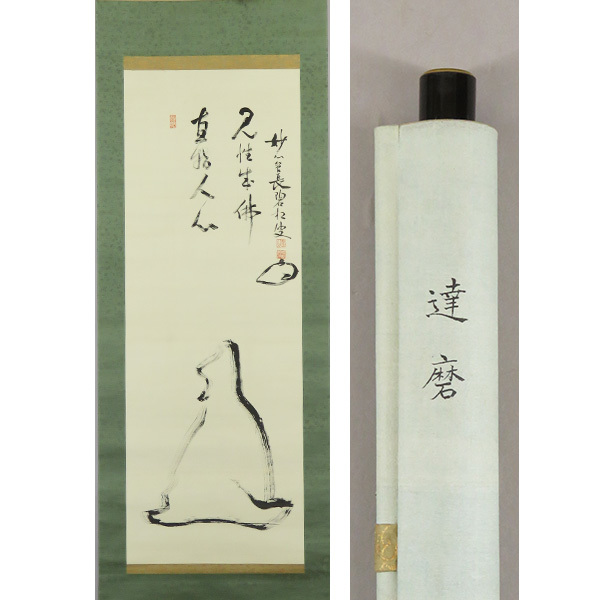 直指人心
見性成佛
妙心管長碧叟
達磨